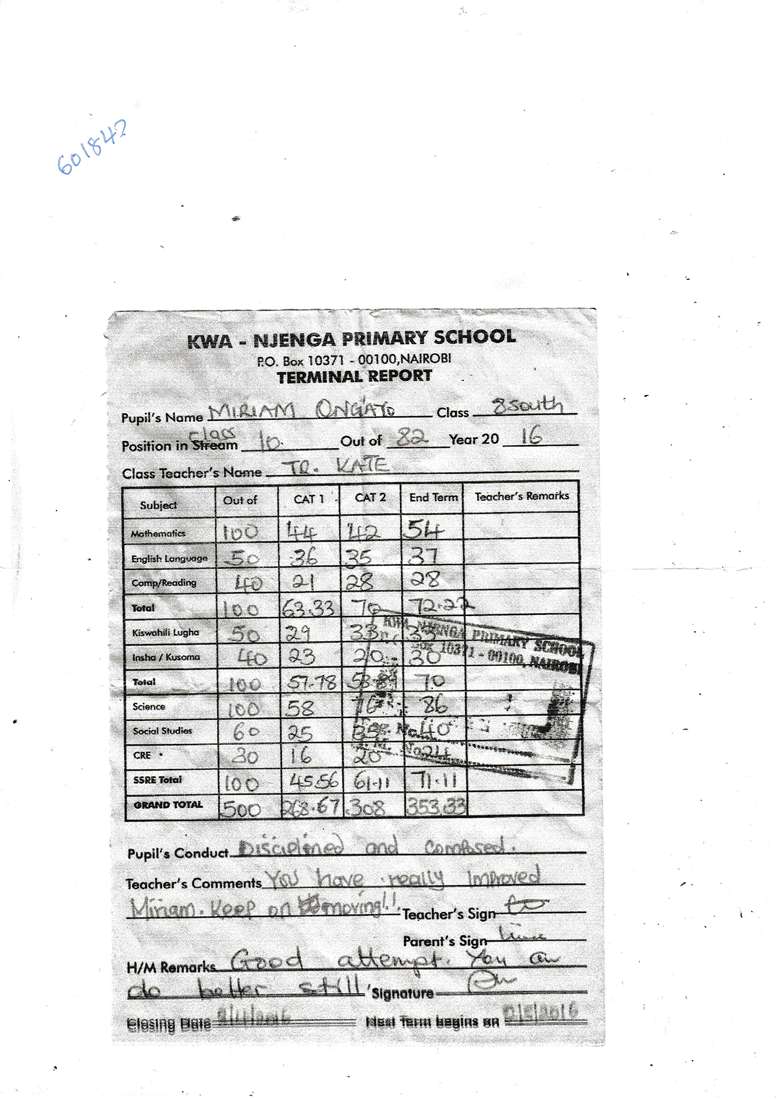 601842
KWA - NJENGA PRIMARY SCHOOL
P.O. Box 10371 - 00100,NAIROBI
TERMINAL REPORT
Pupil's Name MIRIAM ONGAYO Class 8 South
Position in Stream Class 10. Out of 82 Year 20 16
Class Teacher's Name TR. KATE
Subject Out of CAT 1 CAT 2 End Term Teacher's Remarks
Mathematics 100 44 42 54
English Language 50 36 35 37
Comp/Reading 40 21 28 28
Total 100 63.33 70 72.22
Kiswahili Lugha 50 29 33 33
Insha / Kusoma 40 23 20 30
Total 100 57.78 58.89 70
Science 100 58 76 86
Social Studies 60 25 35 40
CRE 30 16 20 24
SSRE Total 100 45.56 61.11 71.11
GRAND TOTAL 500 268.67 308 353.33
KWA NJENGA PRIMARY SCHOOL
Box 10371 - 00100, NAIROBI
Pupil's Conduct Disciplined and Composed.
Teacher's Comments You have really Improved
Miriam. Keep on moving!! Teacher's Sign
Parent's Sign
H/M Remarks Good attempt. You can
do better still Signature
Closing Date Next Term begins on